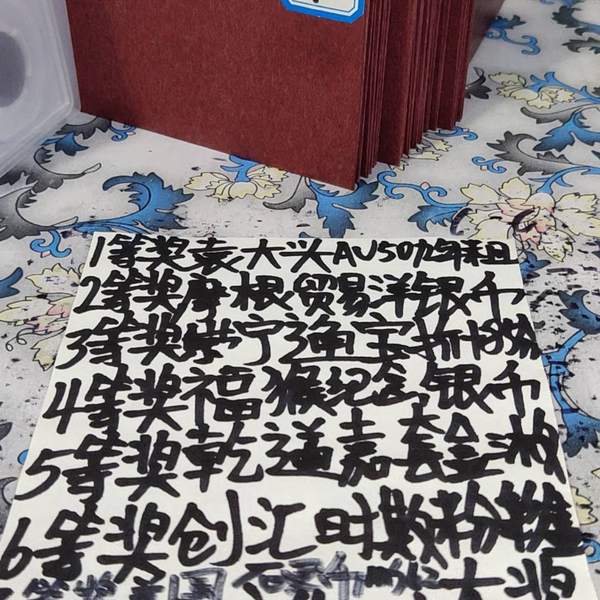 1等奖袁大头AU50九年
2等奖摩根贸易洋银币
3等奖崇宁通宝折十
4等奖福猴纪念银币
5等奖乾道嘉套盒
6等奖创汇时
大奖